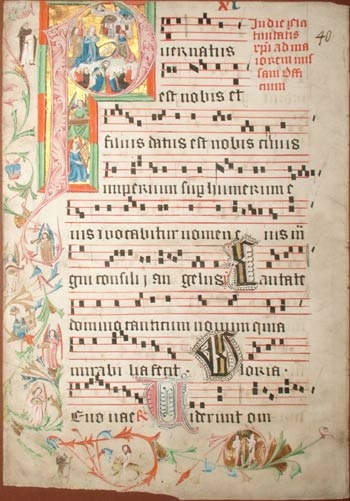 XL
40
In die nati
uitatis
xpi ad ma
iorem mis
sam Offi
cium
Puer natus
est nobis et
filius datus est nobis cuius
imperium sup humerum e
ius i vocabitur nomen eius
gni consilij angelus Cantate
domino canticum nouum quia
mirabilia fecit. Gloria.
Euouae Viderunt om